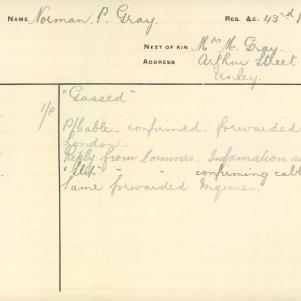 NAME Norman P. Gray. REG. &C. 43rd
NEXT OF KIN Mrs M. Gray.
ADDRESS Arthur Street
Unley.
"Gassed"
1/P Pble. confirmed. forwarded
London.
Reply from Commrs. Information
" " confirming
Same forwarded Inquirer.